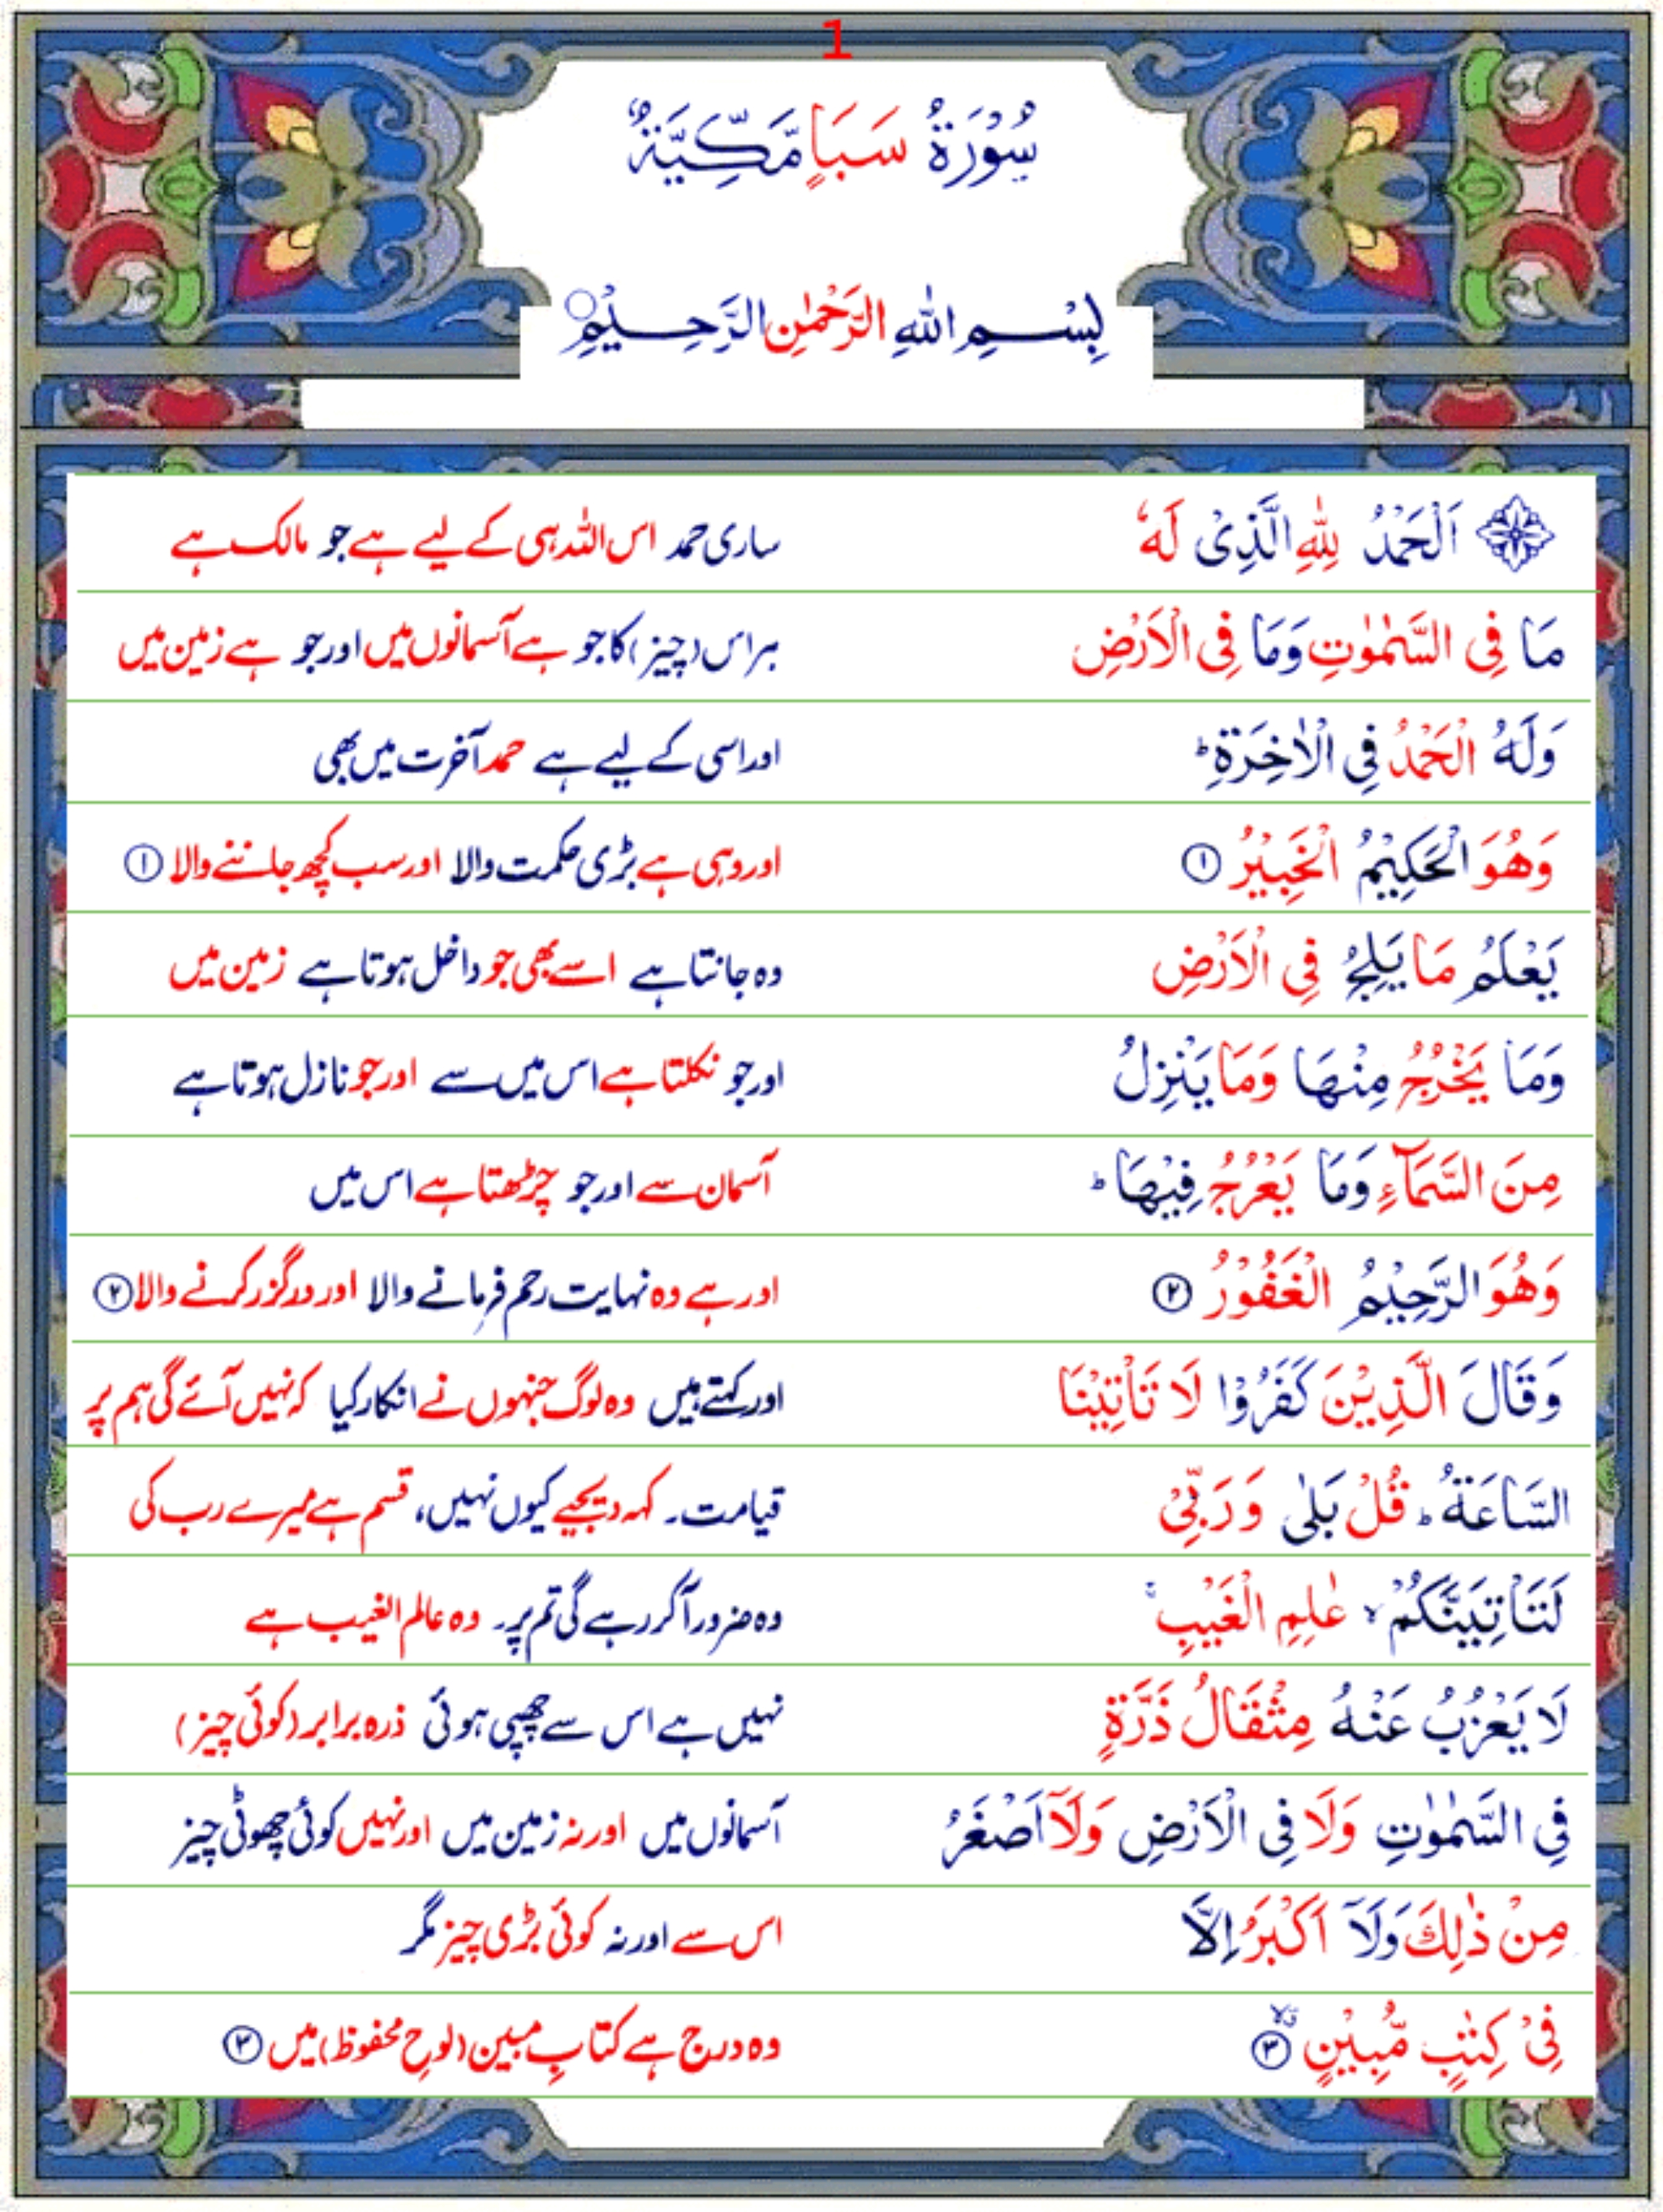 1
سُوْرَةُ سَبَاٍ مَّكِّيَّةٌ
بِسْمِ اللّٰهِ الرَّحْمٰنِ الرَّحِيْمِ
اَلْحَمْدُ لِلّٰهِ الَّذِىْ لَهٗ ساری حمد اس اللہ ہی کے لیے ہے جو مالک ہے
مَا فِى السَّمٰوٰتِ وَمَا فِى الْاَرْضِ ہر اس (چیز) کا جو ہے آسمانوں میں اور جو ہے زمین میں
وَلَهُ الْحَمْدُ فِى الْاٰخِرَةِ ؕ اور اسی کے لیے ہے حمد آخرت میں بھی
وَهُوَ الْحَكِيْمُ الْخَبِيْرُ ① اور وہی ہے بڑی حکمت والا اور سب کچھ جاننے والا ①
يَعْلَمُ مَا يَلِجُ فِى الْاَرْضِ وہ جانتا ہے اسے بھی جو داخل ہوتا ہے زمین میں
وَمَا يَخْرُجُ مِنْهَا وَمَا يَنْزِلُ اور جو نکلتا ہے اس میں سے اور جو نازل ہوتا ہے
مِنَ السَّمَآءِ وَمَا يَعْرُجُ فِيْهَا ؕ آسمان سے اور جو چڑھتا ہے اس میں
وَهُوَ الرَّحِيْمُ الْغَفُوْرُ ② اور ہے وہ نہایت رحم فرمانے والا اور درگزر کرنے والا ②
وَقَالَ الَّذِيْنَ كَفَرُوْا لَا تَاْتِيْنَا اور کہتے ہیں وہ لوگ جنہوں نے انکار کیا کہ نہیں آئے گی ہم پر
السَّاعَةُ ؕ قُلْ بَلٰى وَرَبِّىْ قیامت۔ کہہ دیجیے کیوں نہیں، قسم ہے میرے رب کی
لَتَاْتِيَنَّكُمْ ۙ عٰلِمِ الْغَيْبِ ۚ وہ ضرور آ کر رہے گی تم پر۔ وہ عالم الغیب ہے
لَا يَعْزُبُ عَنْهُ مِثْقَالُ ذَرَّةٍ نہیں ہے اس سے چھپی ہوئی ذرہ برابر (کوئی چیز)
فِى السَّمٰوٰتِ وَلَا فِى الْاَرْضِ وَلَاۤ اَصْغَرُ آسمانوں میں اور نہ زمین میں اور نہیں کوئی چھوٹی چیز
مِنْ ذٰلِكَ وَلَاۤ اَكْبَرُ اِلَّا اس سے اور نہ کوئی بڑی چیز مگر
فِىْ كِتٰبٍ مُّبِيْنٍ ③ وہ درج ہے کتابِ مبین (لوحِ محفوظ) میں ③